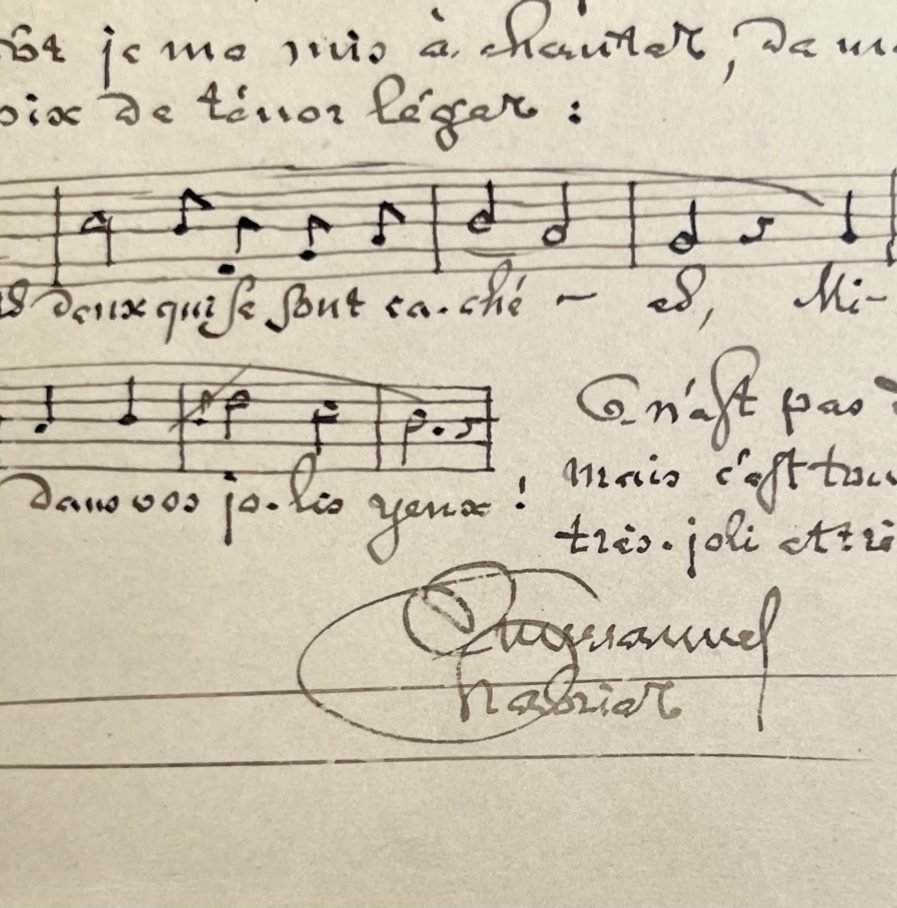 je me mis à chanter, de ma
voix de ténor léger :
deux qui se sont ca-ché - es, Mi-
dans vos jo-lis yeux !
C n'est pas
mais c'est
très-joli et
Emmanuel
Chabrier